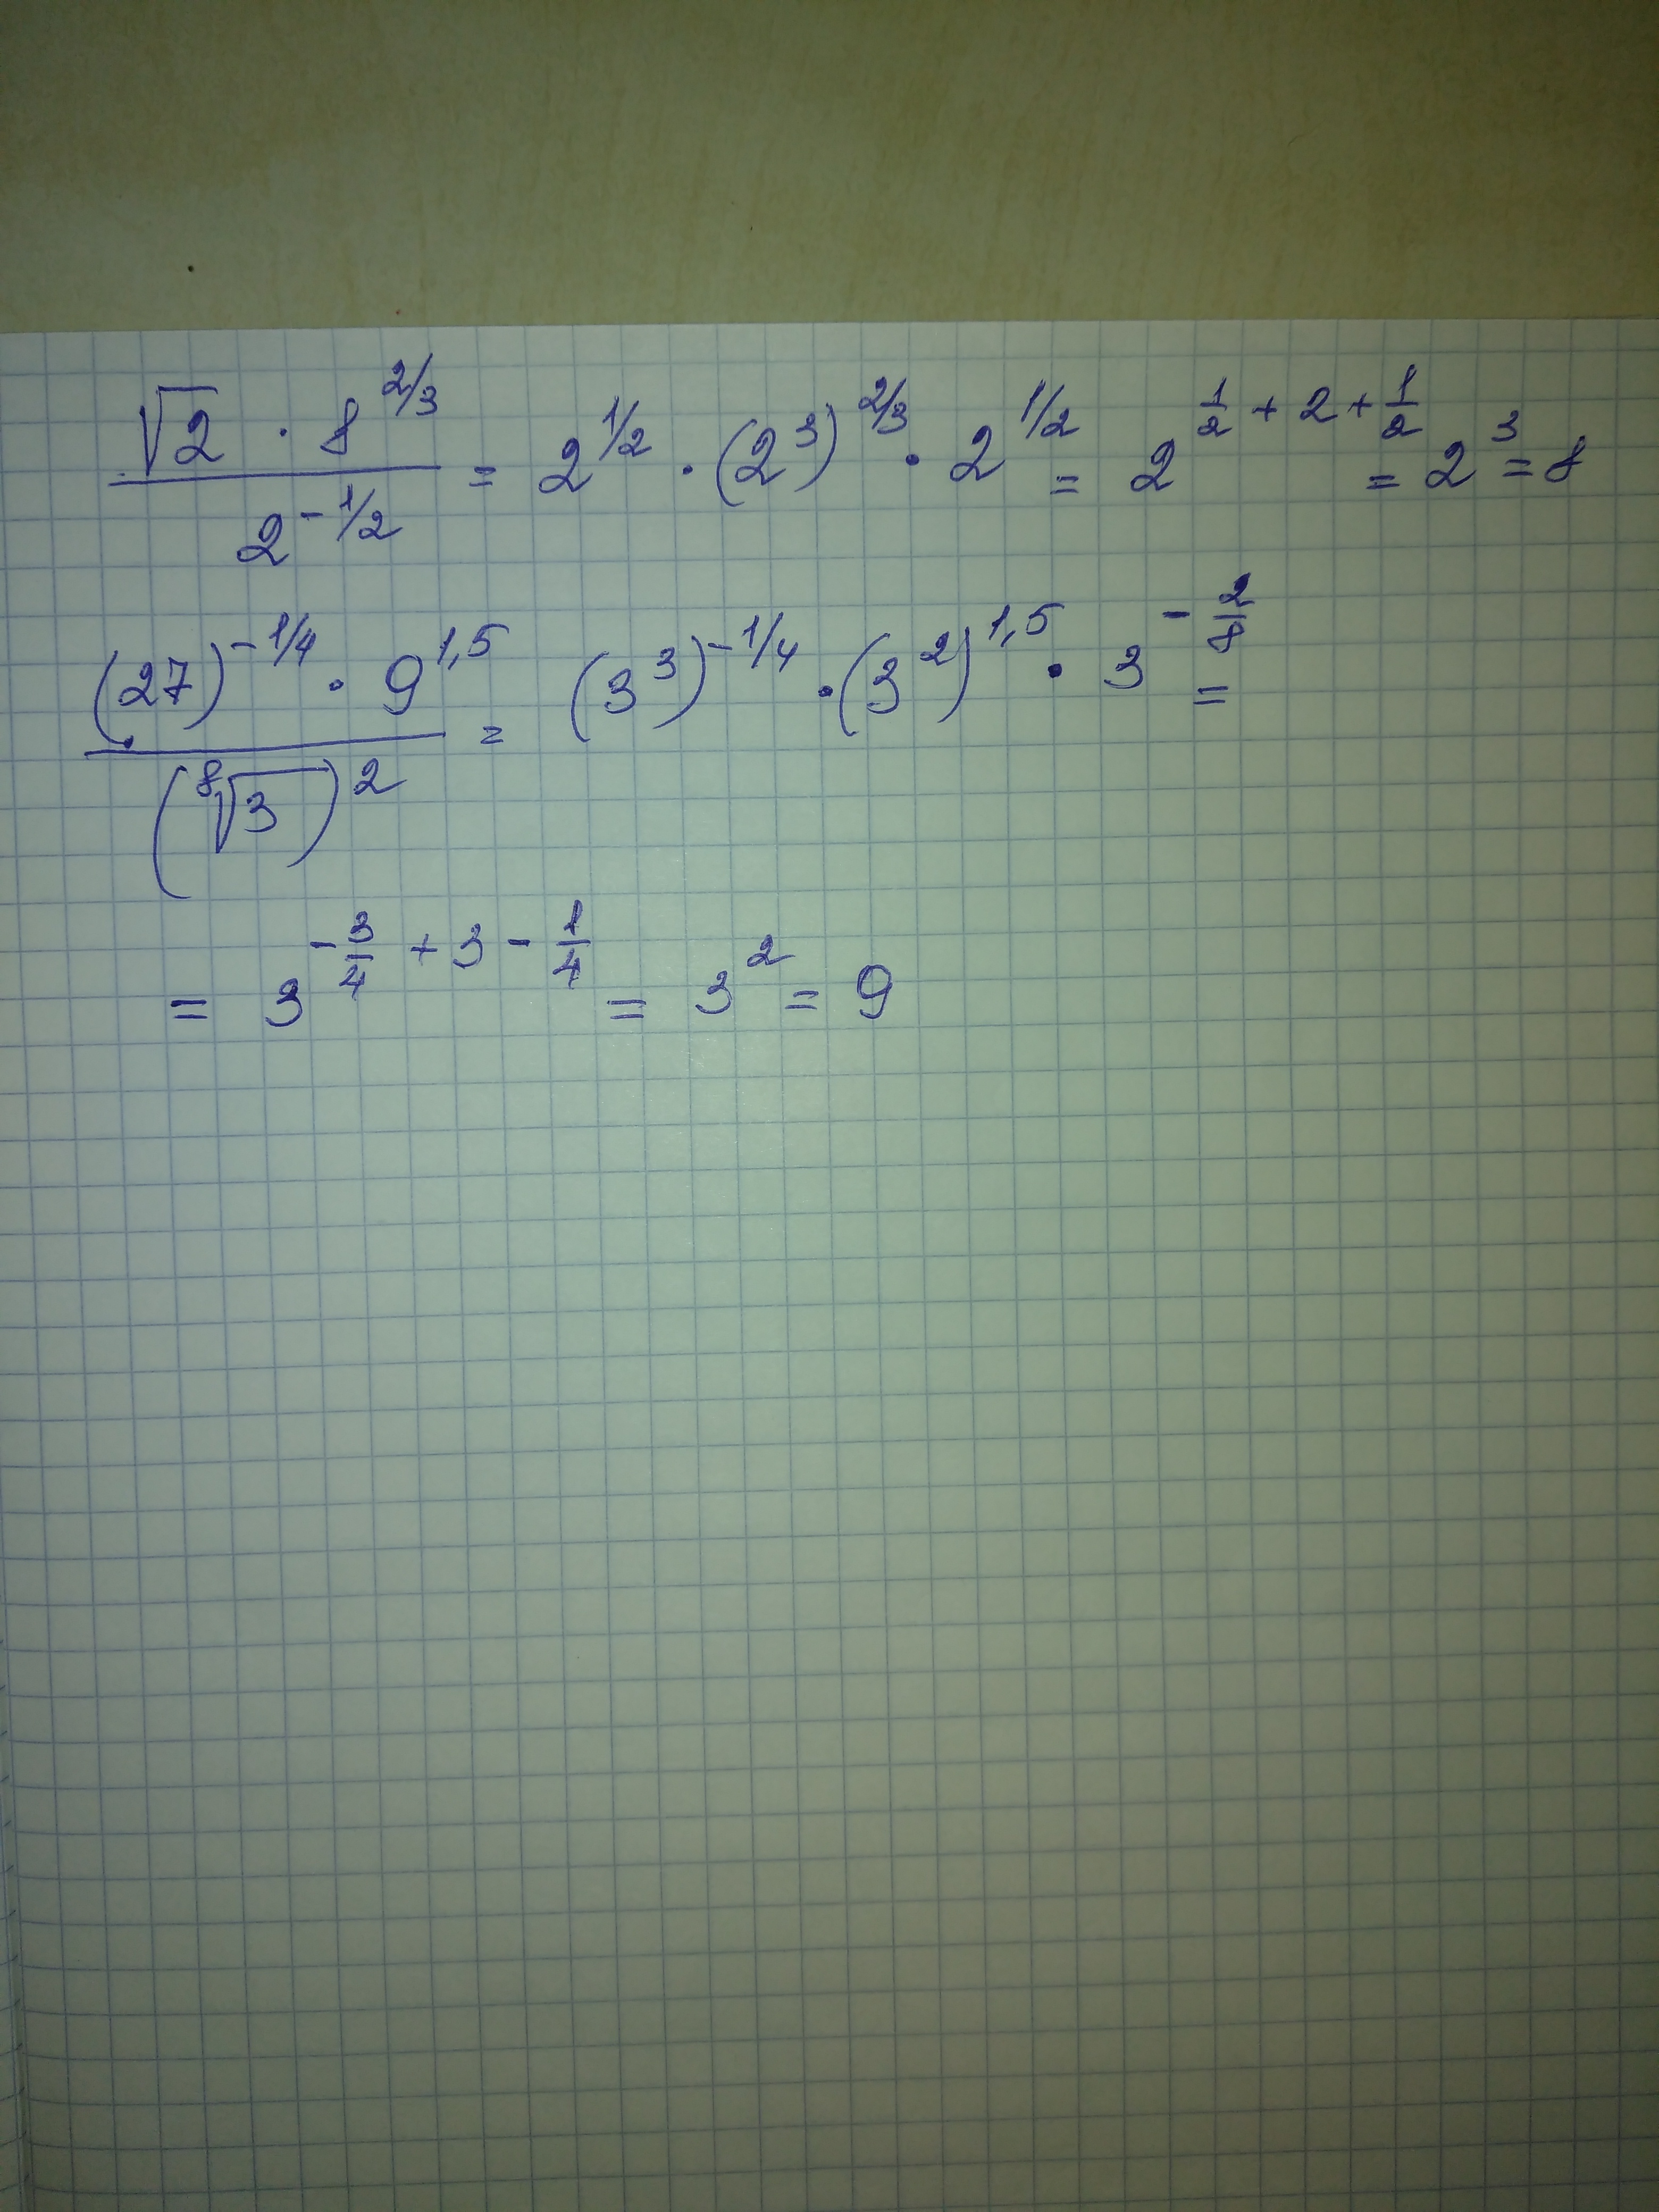 √2 · 8^(2/3) / 2^(-1/2) = 2^(1/2) · (2^3)^(2/3) · 2^(1/2) = 2^(1/2 + 2 + 1/2) = 2^3 = 8
(27)^(-1/4) · 9^(1,5) / (⁸√3)^2 = (3^3)^(-1/4) · (3^2)^(1,5) · 3^(-2/8) =
= 3^(-3/4 + 3 - 1/4) = 3^2 = 9